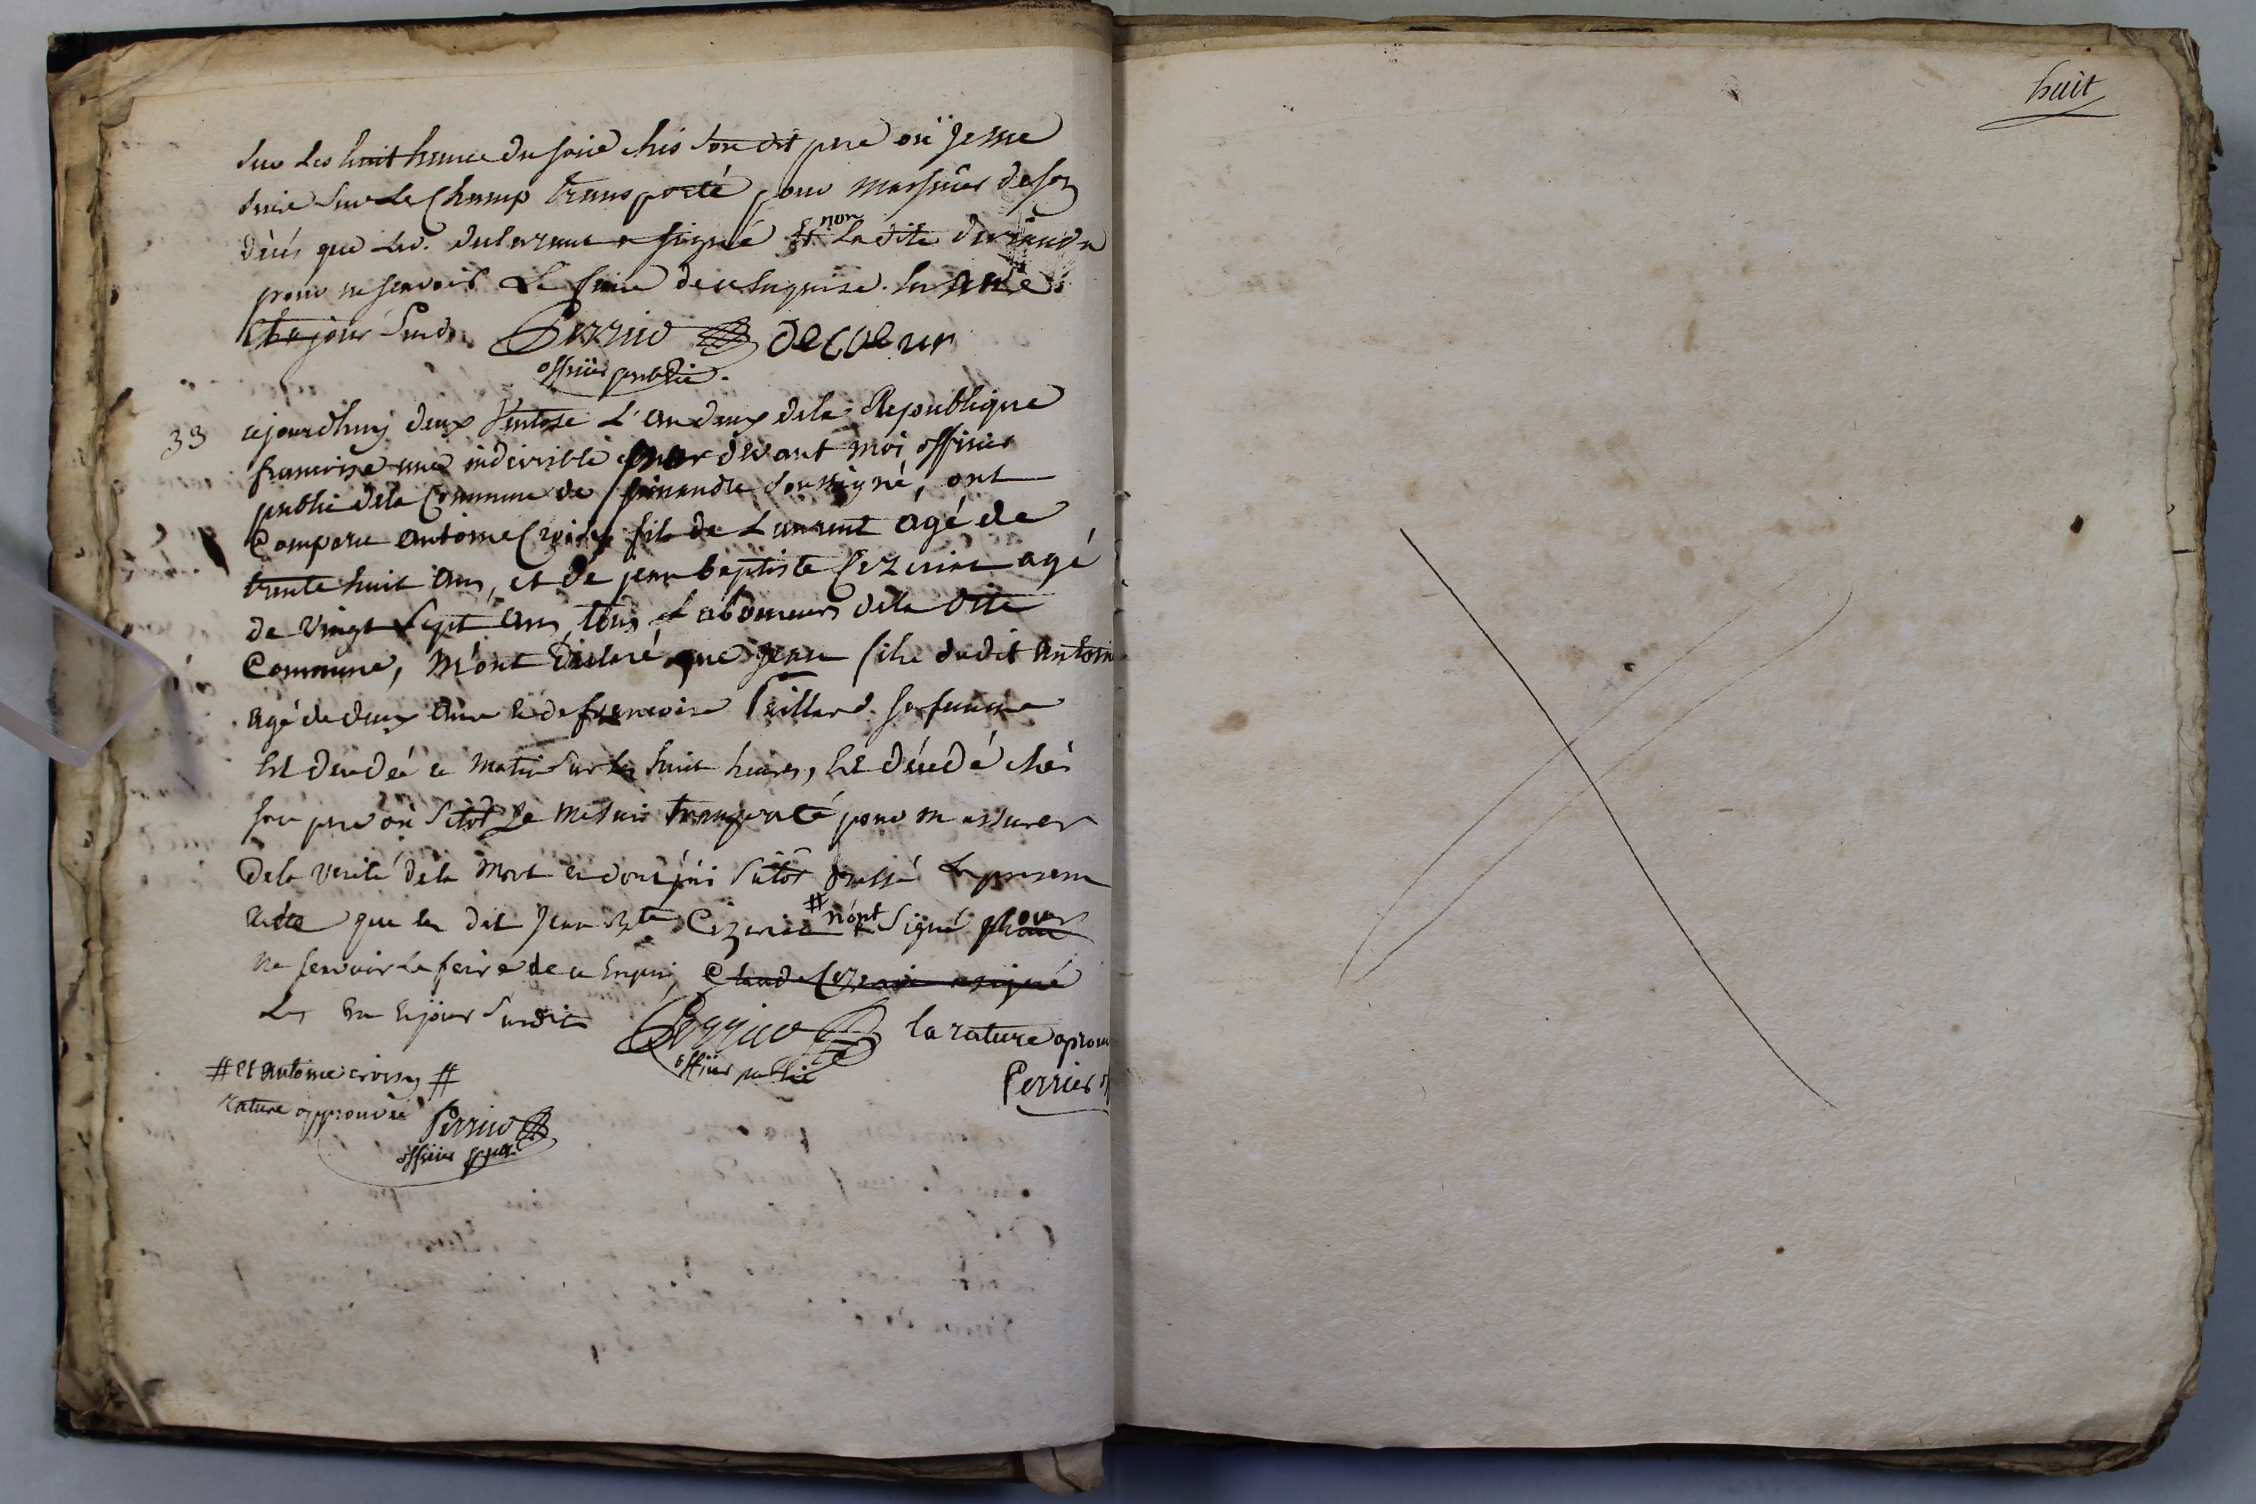 sur les huit heures du soir chés son dit pere ou je me
suis sur le Champ transporté pour m'assurer de son
décés que led. declarant a signé et non la dite
pour ne scavoir le faire de ce enquise. les an et
jour susd. Perrier decoeur
officier public.
33
cejourdhuy deux Ventose L'an deux dela Republique
francoise une indivisible par devant moi officier
public dela Commune de soussigné, ont
Comparu antoine Croisy fils de Laurent agé de
trente huit ans, et de jean baptiste Cezerine agé
de vingt sept ans, tous Laboureurs dela dite
Commune, M'ont déclaré que jean fils dudit antoin
agé de deux ans et de francoise Paillard sa femme
est décédé ce matin sur les huit heures, est décédé chés
son pere ou sitot je me suis transporté pour m'assurer
dela verité dela mort et dont j'ai sitôt dressé le present
acte que les dit jean Bte Cezerine # n'ont signé pour
ne scavoir le faire de ce enquis, Claude Cezerine a signé
Les an et jour susdits Perrier la rature aprouv
officier public Perrier
# et antoine croisy #
rature approuvée Perrier
officier pub.
huit